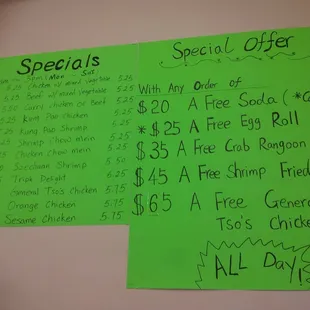 Specials
Mon Sat
5.25 Chicken w/ mixed Vegetable 5.25
5.25 Beef w/ mixed Vegetable 5.25
5.50 Curry Chicken or Beef 5.25
5.25 Kung Pao Chicken 5.25
5.25 Kung Pao Shrimp 5.25
5.25 Shrimp Chow mein 5.25
5.25 Chicken Chow mein 5.25
Szechuan Shrimp 5.50
Triple Delight 6.25
General Tso's Chicken 5.75
Orange Chicken 5.75
Sesame Chicken 5.75
Special Offer
With Any Order of
$20 A Free Soda (*
*$25 A Free Egg Roll
$35 A Free Crab Rangoon
$45 A Free Shrimp Fried
$65 A Free Gener
Tso's Chick
ALL Day!